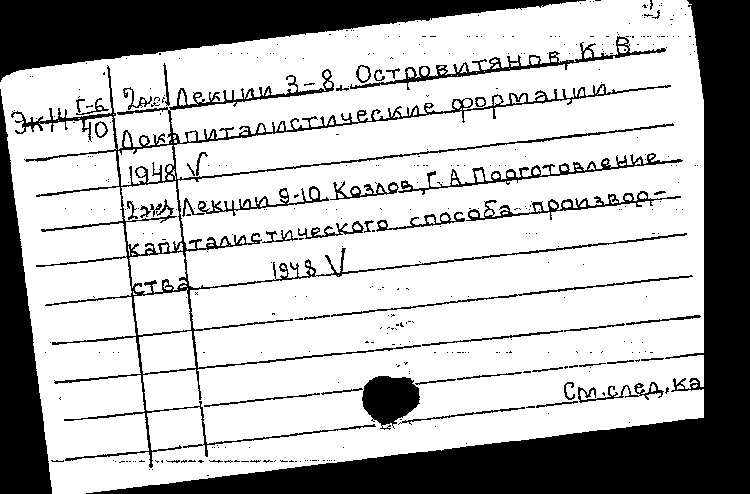 Эк14 Г-6/40 2экз Лекции 3-8. Островитянов, К. В.
Докапиталистические формации.
1948 V
2экз Лекции 9-10. Козлов, Г. А. Подготовление
капиталистического способа производ-
ства 1948 V
См. след. ка